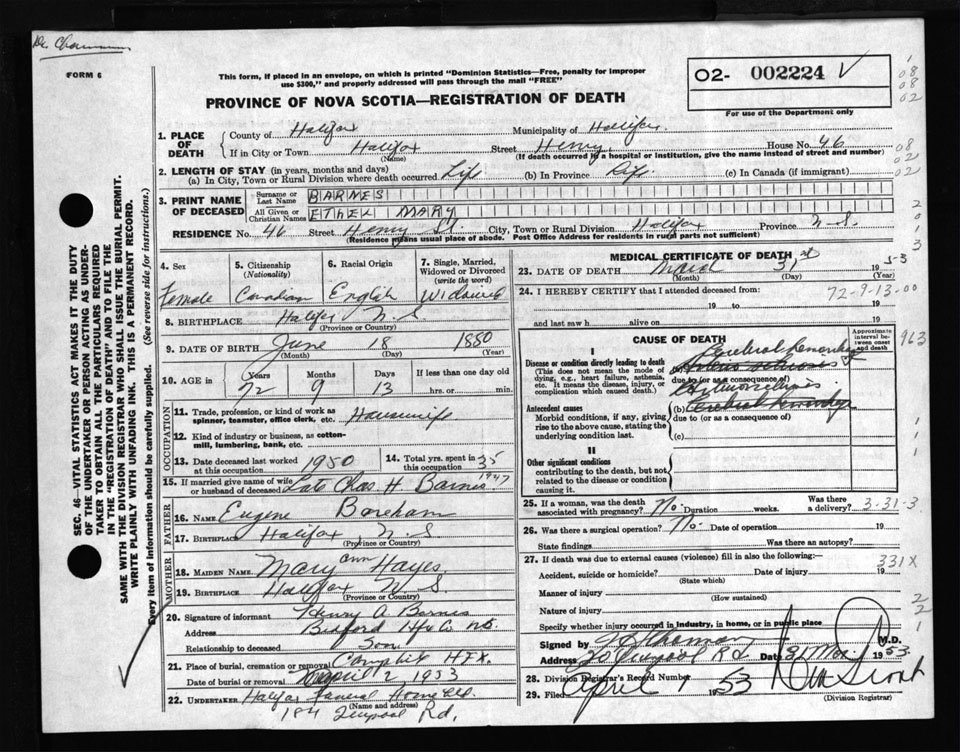 FORM 6
This form, if placed in an envelope, on which is printed "Dominion Statistics—Free, penalty for improper
use $300," and properly addressed will pass through the mail "FREE"
02- 002224
For use of the Department only
PROVINCE OF NOVA SCOTIA—REGISTRATION OF DEATH
1. PLACE OF DEATH
County of Halifax Municipality of Halifax
If in City or Town Halifax Street Henry House No. 46
(Name) (If death occurred in a hospital or institution, give the name instead of street and number)
2. LENGTH OF STAY (in years, months and days)
(a) In City, Town or Rural Division where death occurred Life (b) In Province Life (c) In Canada (if immigrant)
3. PRINT NAME OF DECEASED
Surname or Last Name BARNES
All Given or Christian Names ETHEL MARY
RESIDENCE No. 46 Street Henry St City, Town or Rural Division Halifax Province N.S.
(Residence means usual place of abode. Post Office Address for residents in rural parts not sufficient)
4. Sex
Female
5. Citizenship (Nationality)
Canadian
6. Racial Origin
English
7. Single, Married, Widowed or Divorced (write the word)
Widowed
8. BIRTHPLACE Halifax N.S.
(Province or Country)
9. DATE OF BIRTH June 18 1880
(Month) (Day) (Year)
10. AGE in
Years Months Days If less than one day
72 9 13 hrs. or min.
OCCUPATION
11. Trade, profession, or kind of work as spinner, teamster, office clerk, etc. Housewife
12. Kind of industry or business, as cotton-mill, lumbering, bank, etc.
13. Date deceased last worked at this occupation 1950
14. Total yrs. spent in this occupation 35
15. If married give name of wife or husband of deceased Late Chas. H Barnes 1947
FATHER
16. NAME Eugene Boreham
17. BIRTHPLACE Halifax N.S.
(Province or Country)
MOTHER
18. MAIDEN NAME Mary Ann Hayes
19. BIRTHPLACE Halifax N S
(Province or Country)
20. Signature of informant Henry A. Barnes
Address Bedford Hfx Co N.S.
Relationship to deceased Son
21. Place of burial, cremation or removal Camphill HFX.
Date of burial or removal April 2 1953
22. UNDERTAKER Halifax Funeral Home Ltd.
(Name and address)
Rd.
MEDICAL CERTIFICATE OF DEATH
23. DATE OF DEATH March 31st 1953
(Month) (Day) (Year)
24. I HEREBY CERTIFY that I attended deceased from:
72-9-13-00
19 to 19
and last saw h alive on 19
CAUSE OF DEATH
Approximate interval between onset and death
963
I
Disease or condition directly leading to death
(This does not mean the mode of dying, e.g., heart failure, asthenia, etc. It means the disease, injury, or complication which caused death.)
Cerebral Hemorrhage
due to (or as a consequence of)
Arteriosclerosis
Antecedent causes
Morbid conditions, if any, giving rise to the above cause, stating the underlying condition last.
(b) Cerebral Hemorrhage
due to (or as a consequence of)
(c)
II
Other significant conditions
contributing to the death, but not related to the disease or condition causing it.
25. If a woman, was the death associated with pregnancy? No Duration weeks. Was there a delivery? 3-31-3
26. Was there a surgical operation? No Date of operation 19
State findings Was there an autopsy?
27. If death was due to external causes (violence) fill in also the following:
331X
Accident, suicide or homicide? Date of injury 19
(State which)
Manner of injury
(How sustained)
Nature of injury
Specify whether injury occurred in industry, in home, or in public place
Signed by M.D.
Address Rd Date 31 Mar 1953
28. Division Registrar's Record Number
29. Filed April 1 1953
(Division Registrar)
SEC. 46—VITAL STATISTICS ACT MAKES IT THE DUTY
OF THE UNDERTAKER OR PERSON ACTING AS UNDER-
TAKER TO OBTAIN ALL THE PARTICULARS REQUIRED
IN THE "REGISTRATION OF DEATH" AND TO FILE THE
SAME WITH THE DIVISION REGISTRAR WHO SHALL ISSUE THE BURIAL PERMIT.
WRITE PLAINLY WITH UNFADING INK. THIS IS A PERMANENT RECORD.
Every item of information should be carefully supplied. (See reverse side for instructions.)